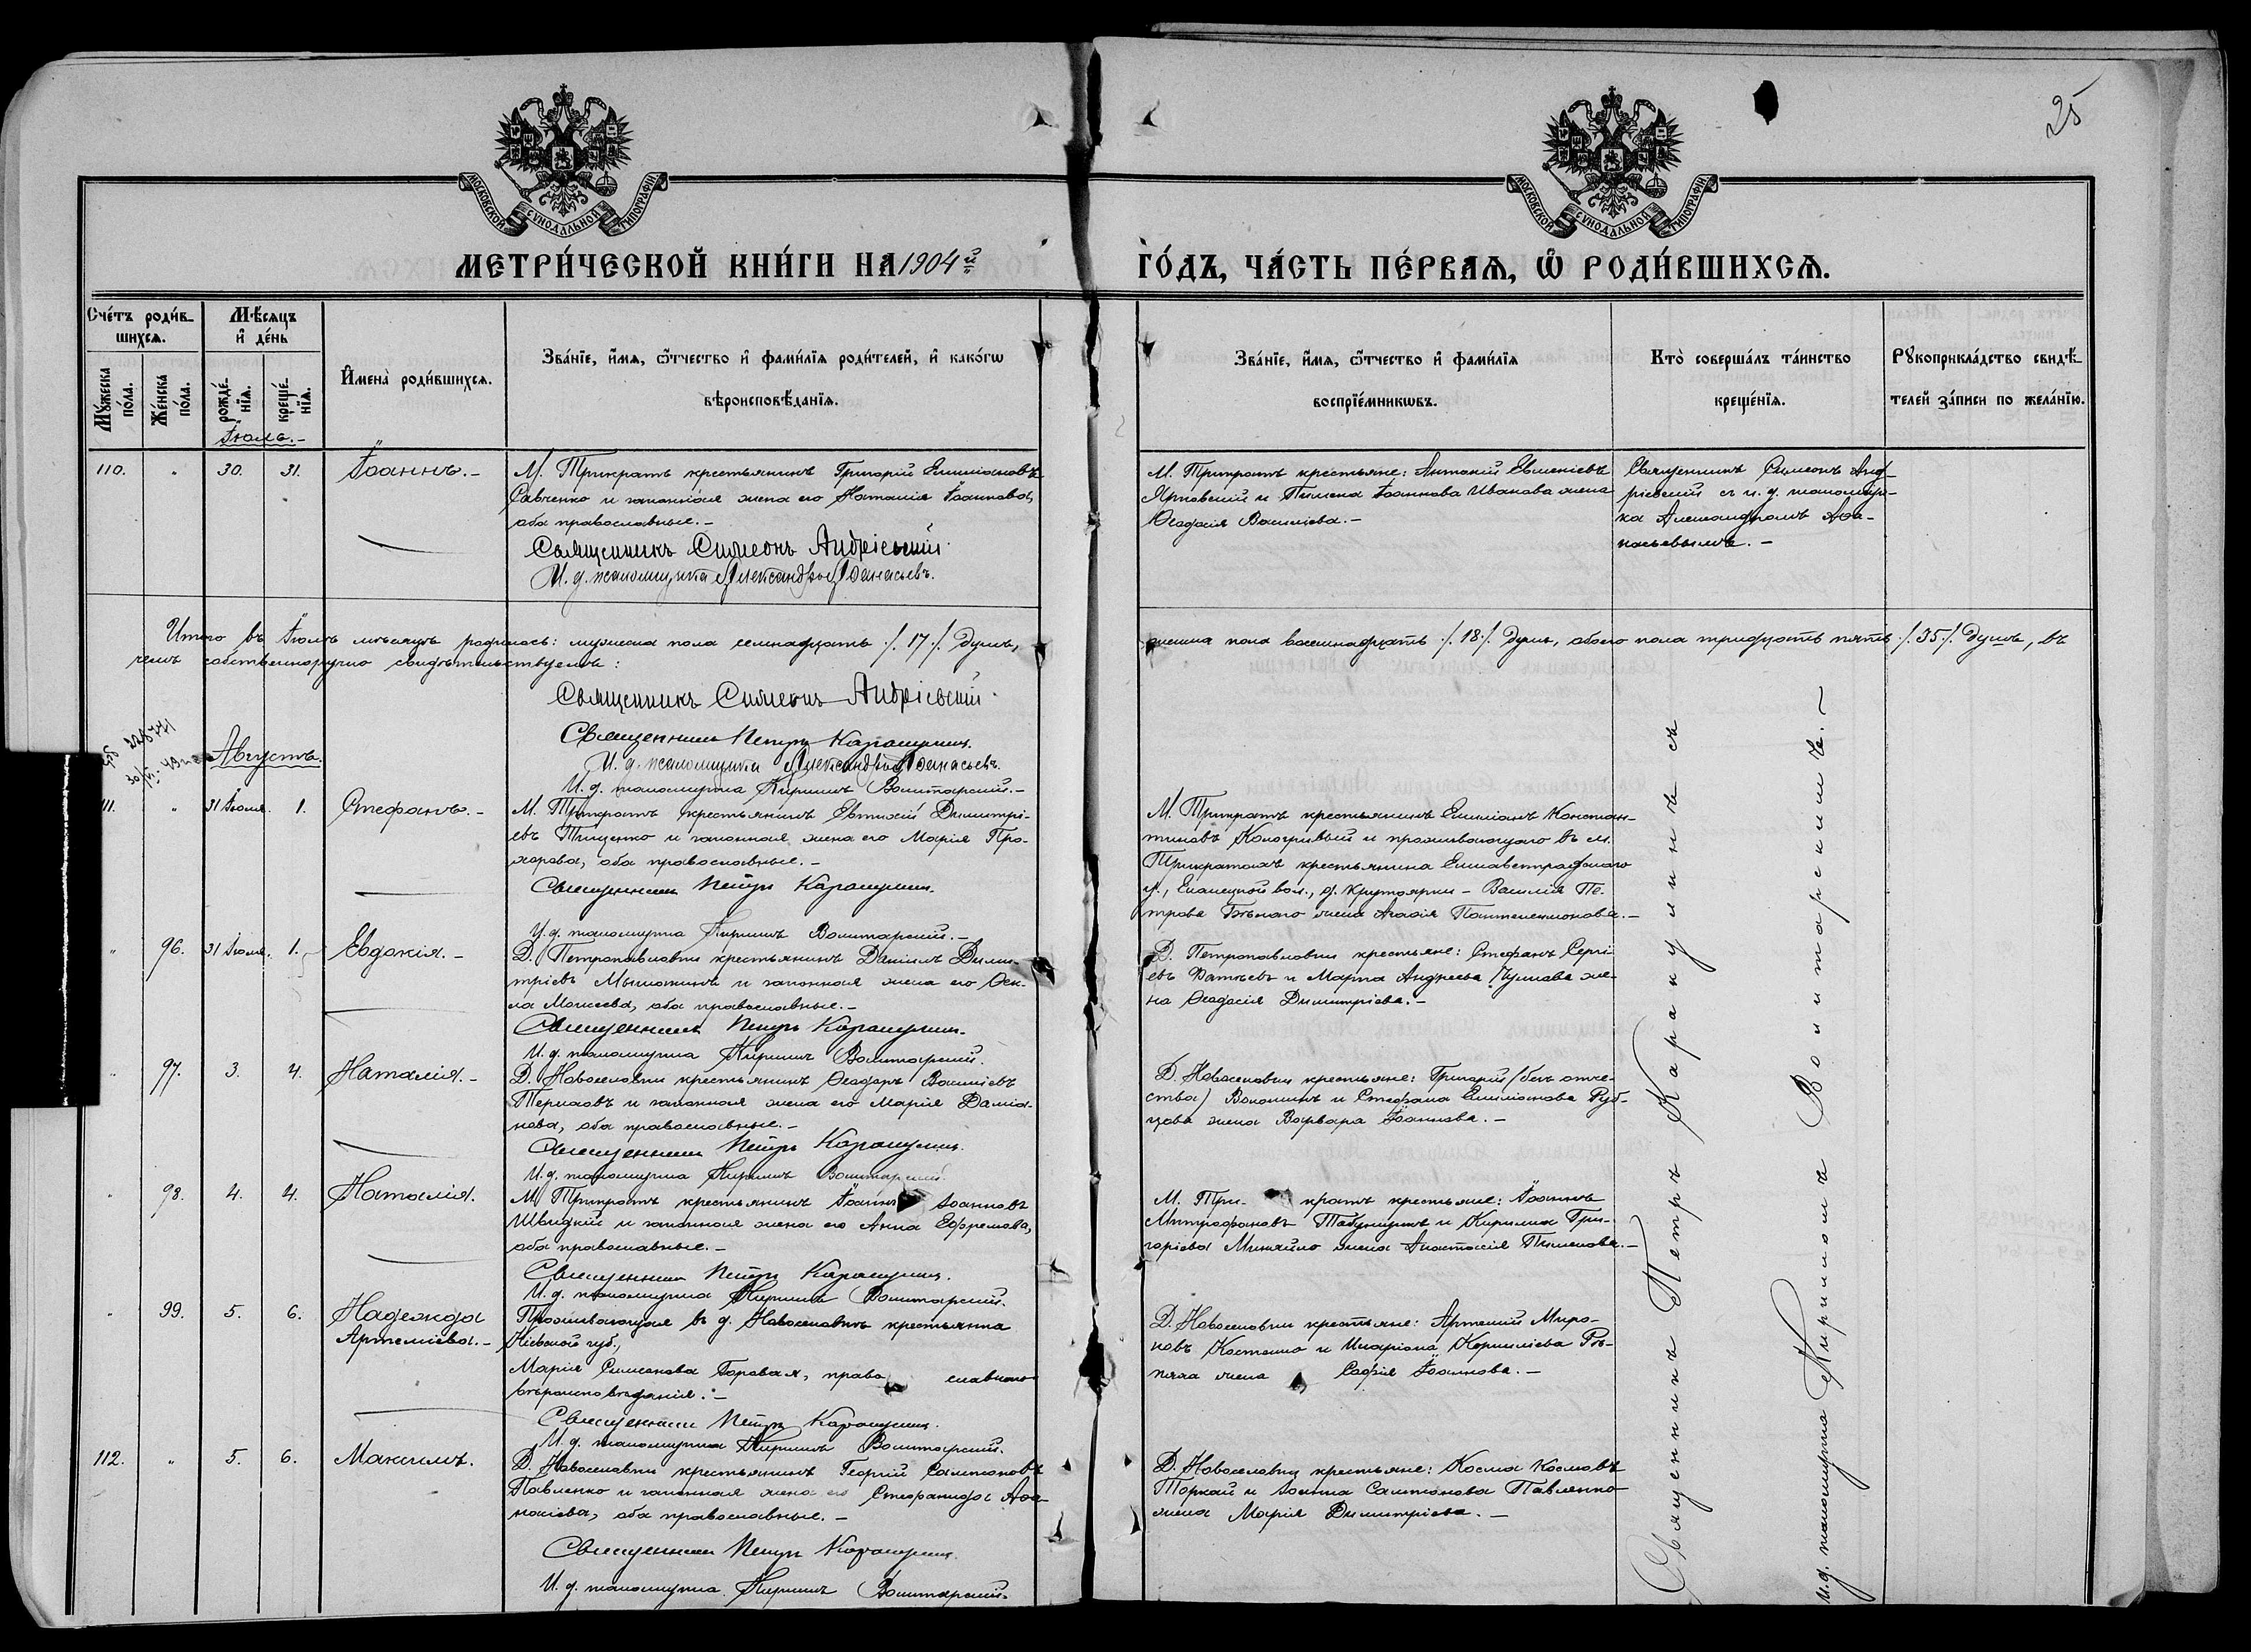 25
МОСКОВСКОЙ СѴНОДАЛЬНОЙ ТИПОГРАФІИ
МОСКОВСКОЙ СѴНОДАЛЬНОЙ ТИПОГРАФІИ
МЕТРИ́ЧЕСКОЙ КНИ́ГИ НА 1904й
ГО́ДЪ, ЧА́СТЬ ПЕ́РВАЯ, Ѿ РОДИ́ВШИХСЯ.
Счéтъ роди́в-
шихся.
Мѣ́сяцъ
и҆ дéнь
Мꙋ́жеска
по́ла.
Же́нска
по́ла.
рожде́-
нїя.
креще́-
нїя.
И҆менà роди́вшихся.
Зва́нїе, и҆́мя, ѻ҆́тчество и҆ фами́лїя роди́телей, и҆ како́гѡ
вѣроисповѣ́данїя.
Зва́нїе, и҆́мя, ѻ҆́тчество и҆ фами́лїя
воспрїе́мникѡвъ.
Кто̀ соверша́лъ та́инство
креще́нїя.
Рꙋкоприкла́дство свидѣ́-
телей за́писи по жела́нїю.
Іюль.-
110. " 30. 31. Іоаннъ.-
М. Трикратъ крестьянинъ Григорій Емиліановъ
Савченко и законная жена его Наталія Іоаннова,
оба православные.-
Священникъ Симеонъ Андріевскій
И. д. псаломщика Александръ Аѳанасьевъ.
М. Трикратъ крестьяне: Антоній Евменіевъ
Ярновскій и Пимена Іоаннова Иванова жена
Ѳеодосія Василіева.-
Священникъ Симеонъ Анд-
ріевскій съ и. д. псаломщи-
ка Александромъ Аѳа-
насьевымъ.-
Итого въ Іюлѣ мѣсяцѣ родилось: мужеска пола семнадцать ./. 17 ./. душъ,
женска пола восемнадцать ./. 18 ./. душъ, обоего пола тридцать пять ./. 35 ./. душъ, въ
чемъ собственноручно свидѣтельствуемъ:
Священникъ Симеонъ Андріевскій
Священникъ Петръ Каракулинъ.
И. д. псаломщика Александръ Аѳанасьевъ.
И. д. псаломщика Кириллъ Волитарскій.-
Августъ.
111. " 31 Іюля. 1. Стефанъ.-
М. Трикратъ крестьянинъ Евтихій Димитрі-
евъ Тищенко и законная жена его Марія Про-
хорова, оба православные.-
Священникъ Петръ Каракулинъ.
И. д. псаломщика Кириллъ Волитарскій.-
М. Трикратъ крестьянинъ Емиліанъ Констан-
тиновъ Кологривый и проживающаго въ м.
Трикратахъ крестьянина Елисаветградскаго
у., Еланецкой вол., д. Крутоярки - Василія Пе-
трова Бѣлаго жена Агаѳія Пантелеимонова.-
" 96. 31 Іюля. 1. Евдокія.-
Д. Петропавловки крестьянинъ Даніилъ Дими-
тріевъ Мышакинъ и законная жена его Ѳек-
ла Моисеева, оба православные.-
Священникъ Петръ Каракулинъ.
И. д. псаломщика Кириллъ Волитарскій.
Д. Петропавловки крестьяне: Стефанъ Сергі-
евъ Фатѣевъ и Марка Андреева же-
на Ѳеодосія Димитріева.-
" 97. 3. 4. Наталія.-
Д. Новоселовки крестьянинъ Ѳеодоръ Василіевъ
Терновъ и законная жена его Марія Даміа-
нова, оба православные.-
Священникъ Петръ Каракулинъ.
И. д. псаломщика Кириллъ Волитарскій
Д. Новоселовки крестьяне: Григорій (безъ отче-
ства) Волошинъ и Стефана Емиліанова Руб-
цова жена Варвара Іоаннова.-
" 98. 4. 4. Наталія.
М. Трикратъ крестьянинъ Іоаннъ Іоанновъ
Швидкій и законная жена его Анна Ефремова,
оба православные.-
Священникъ Петръ Каракулинъ.
И. д. псаломщика Кириллъ Волитарскій.
М. Три- кратъ крестьяне: Іоаннъ
Митрофановъ Табунщикъ и Кирилла Гри-
горіева Михайло жена Анастасія Пименова.-
" 99. 5. 6. Надежда
Артеміева.-
Проживающая въ д. Новоселовкѣ крестьянка
Кіевской губ.,
Марія Симеонова Боровая, право славнаго
вѣроисповѣданія.-
Священникъ Петръ Каракулинъ.
И. д. псаломщика Кириллъ Волитарскій.
Д. Новоселовки крестьяне: Артемій Миро-
новъ Костенко и Иларіона Корниліева Рѣ-
пяха жена Софія Іоаннова.-
112. " 5. 6. Максимъ.
Д. Новоселовки крестьянинъ Георгій Сампсоновъ
Павленко и законная жена его Стефанида Аѳа-
насіева, оба православные.-
Священникъ Петръ Каракулинъ.
И. д. псаломщика Кириллъ Волитарскій.
Д. Новоселовки крестьяне: Косма Космовъ
Торкай и Іоанна Сампсонова Павленко
жена Марія Димитріева.-
Священникъ Петръ Каракулинъ съ
и. д. псаломщика Кирилломъ Волитарскимъ.-